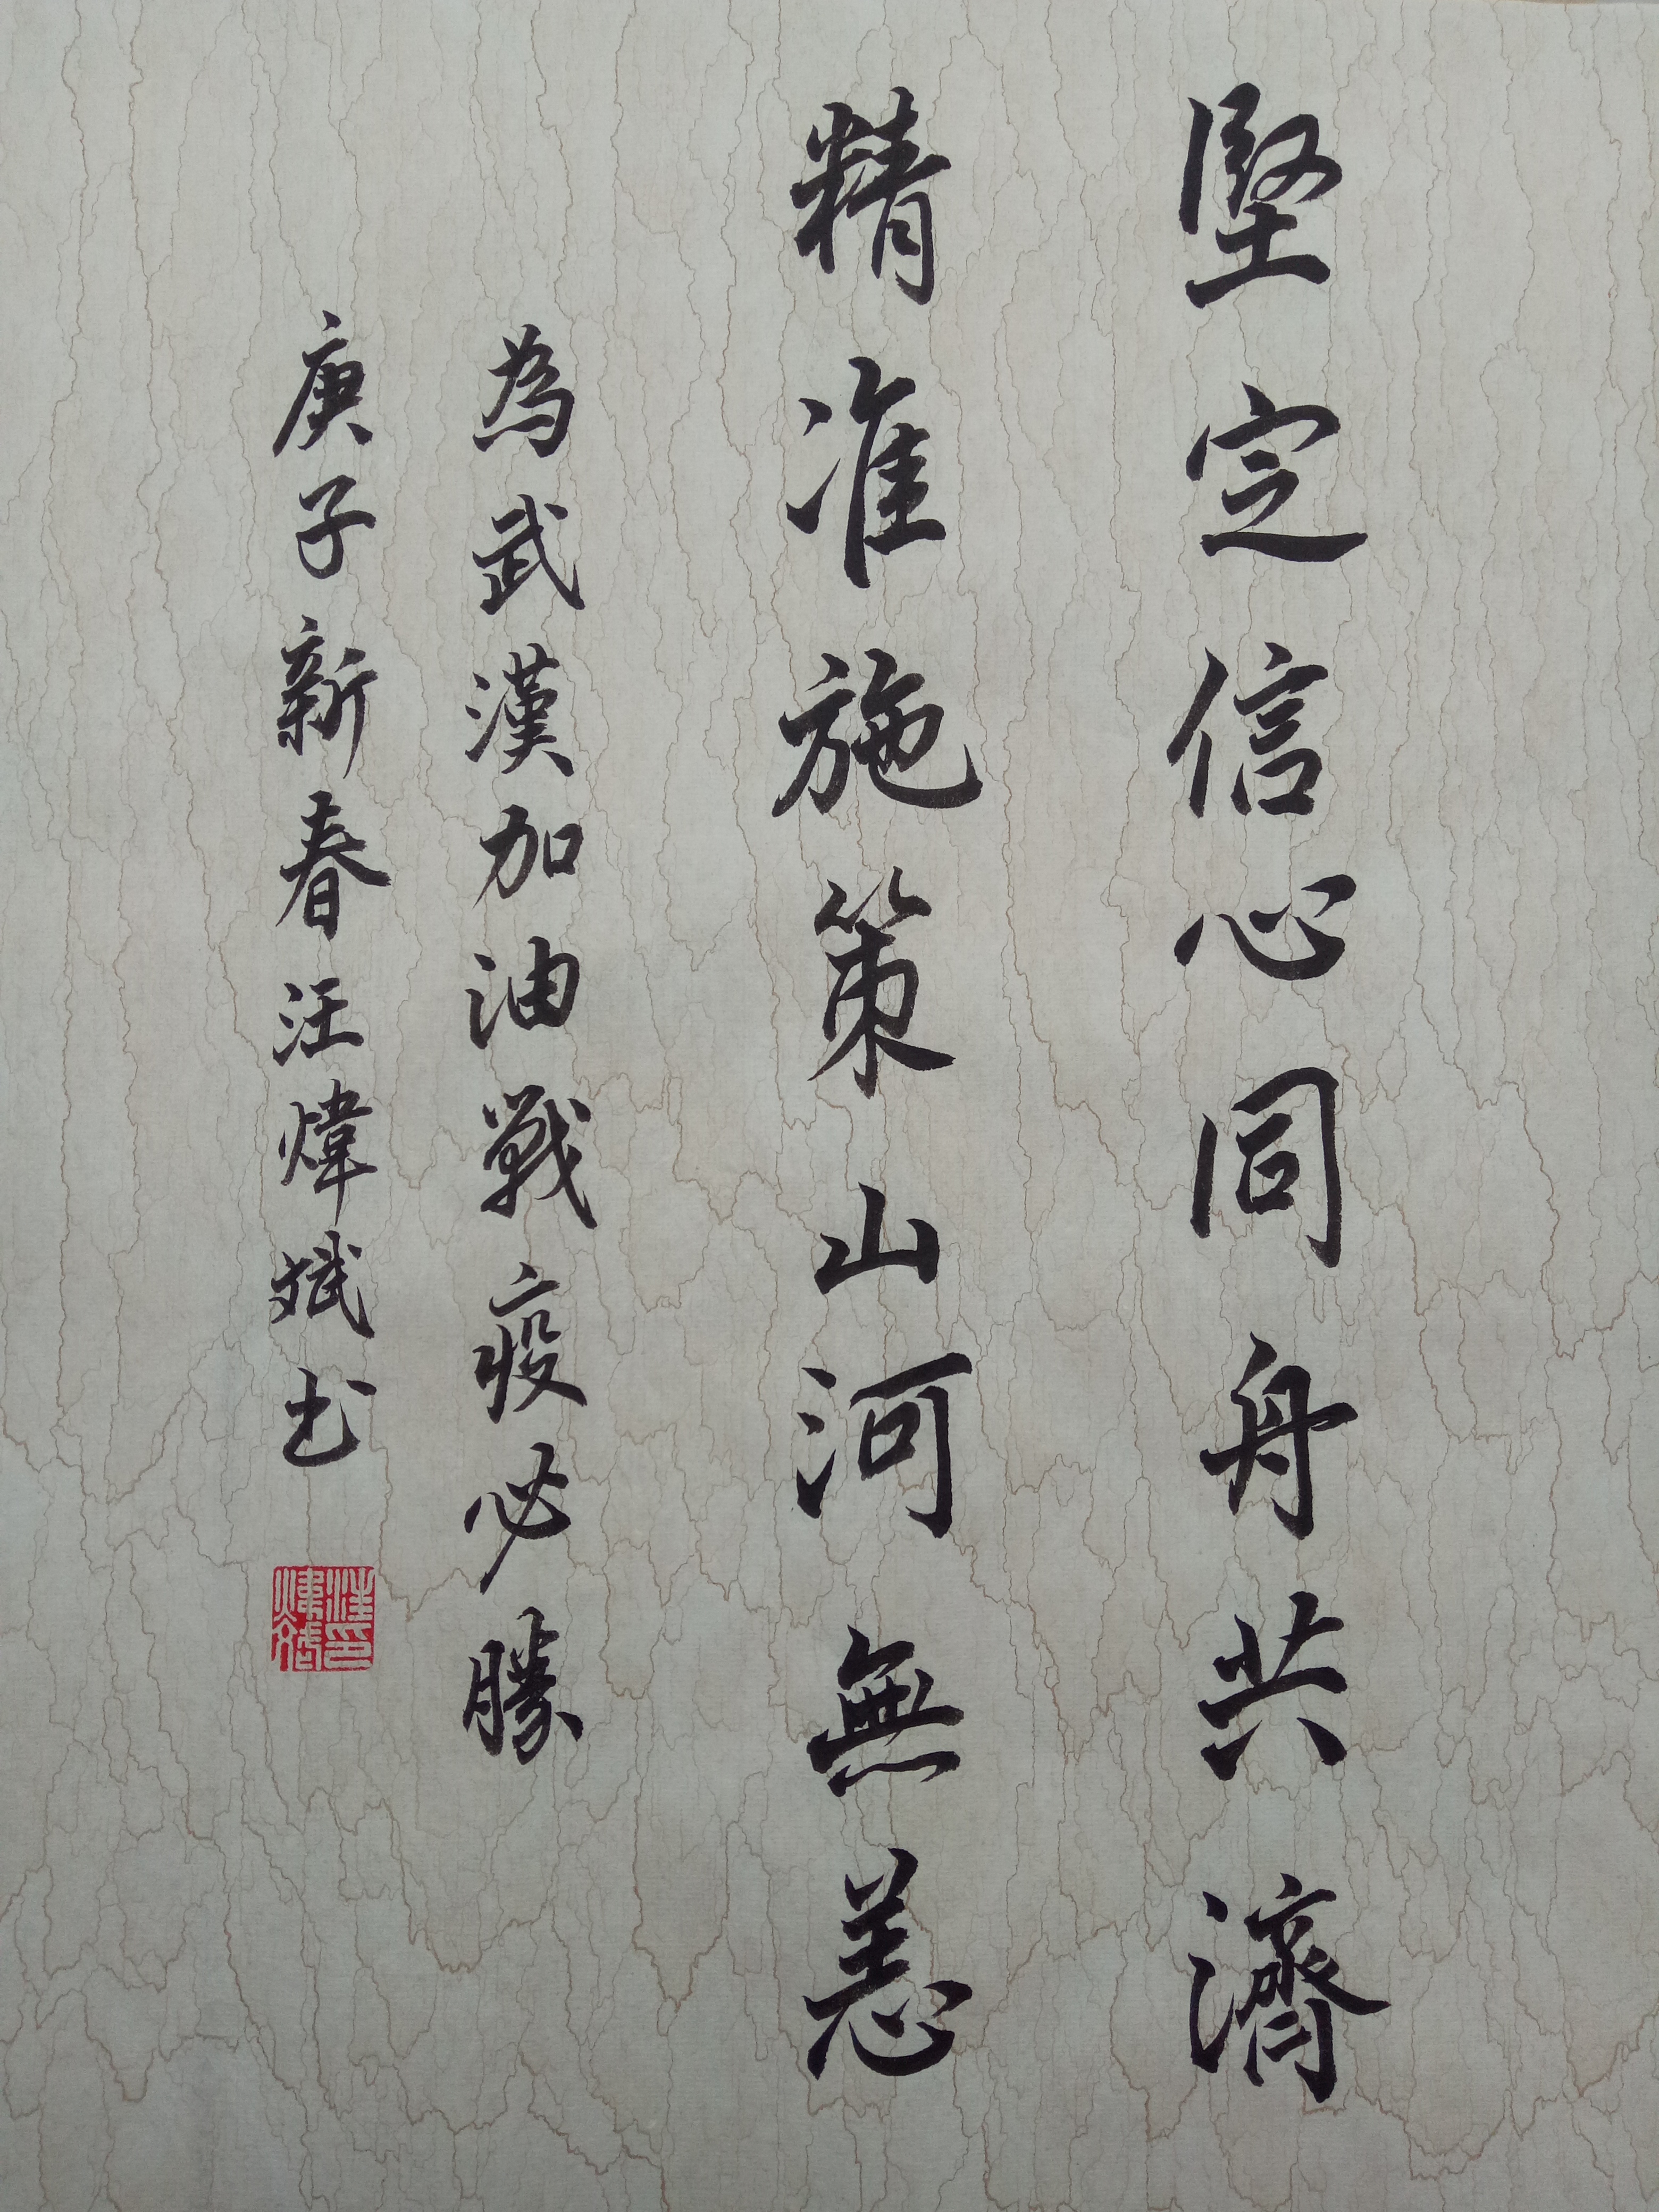 堅定信心同舟共濟
精准施策山河無恙
為武漢加油戰疫必勝
庚子新春汪煒斌书
汪印煒斌